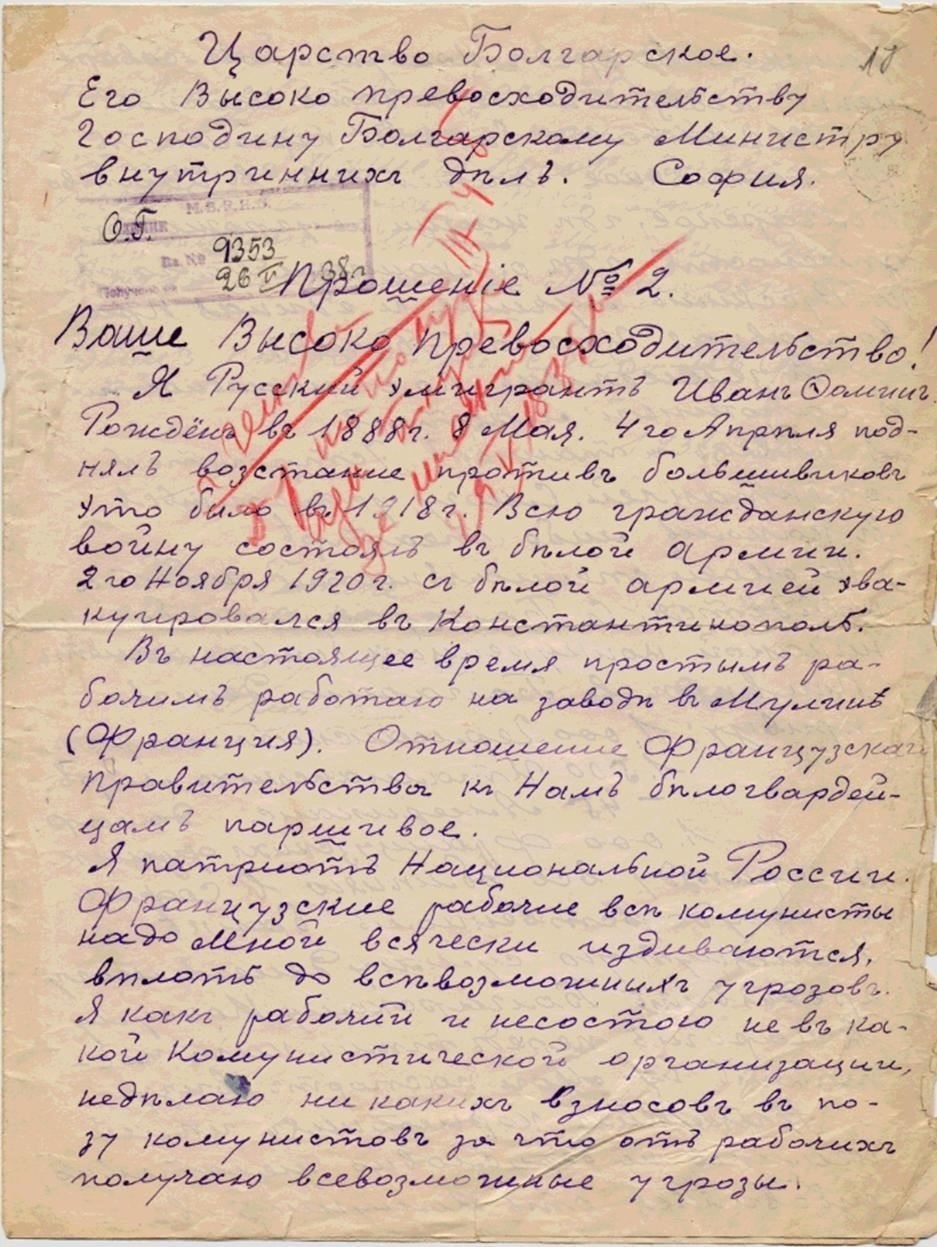 Царство Болгарское.
Его Высоко превосходительству
Господину Болгарскому Министру
внутриннихъ дѣлъ. София.
О.Г.
9353
26 II 38г
Прошеніе № 2.
Ваше Высоко превосходительство!
Я Русский эмигрантъ Иванъ Ѳоминъ.
Рождёнъ въ 1888г. 8 Мая. 4го Апрѣля под-
нялъ возстание противъ большивиковъ
это было въ 1918г. Всю гражданскую
войну состоялъ въ бѣлой армии.
2го Ноября 1920г. съ бѣлой армией эва-
куировался въ Константинополь.
Въ настоящее время простымъ ра-
бочимъ работаю на заводѣ въ Мулинѣ
(Франция). Отношение Французскаго
правительства къ Намъ бѣлогвардей-
цамъ паршивое.
Я патриотъ Национальной России.
Французские рабочие всѣ комунисты
надо Мной всячески издиваются,
вплоть до всѣвозможныхъ угрозовъ.
Я какъ рабочий и несостою не въ ка-
кой Комунистической организации,
недѣлаю ни какихъ взносовъ въ по-
зу комунистовъ за что отъ рабочихъ
получаю всевозможные угрозы.